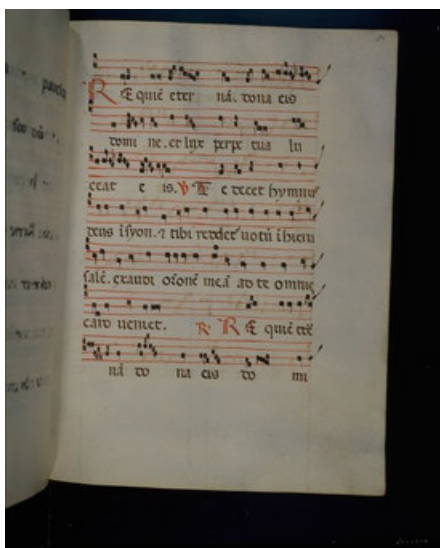 REquiē eter nā. dona eis
domi ne. et lux perpe tua lu
ceat e is. V TE decet hymnus
deus i syon. ⁊ tibi reddet uotū i hieru
salē. exaudi orōnē meā ad te omnis
caro ueniet. R. REquiē etē
nā do na eis do mi